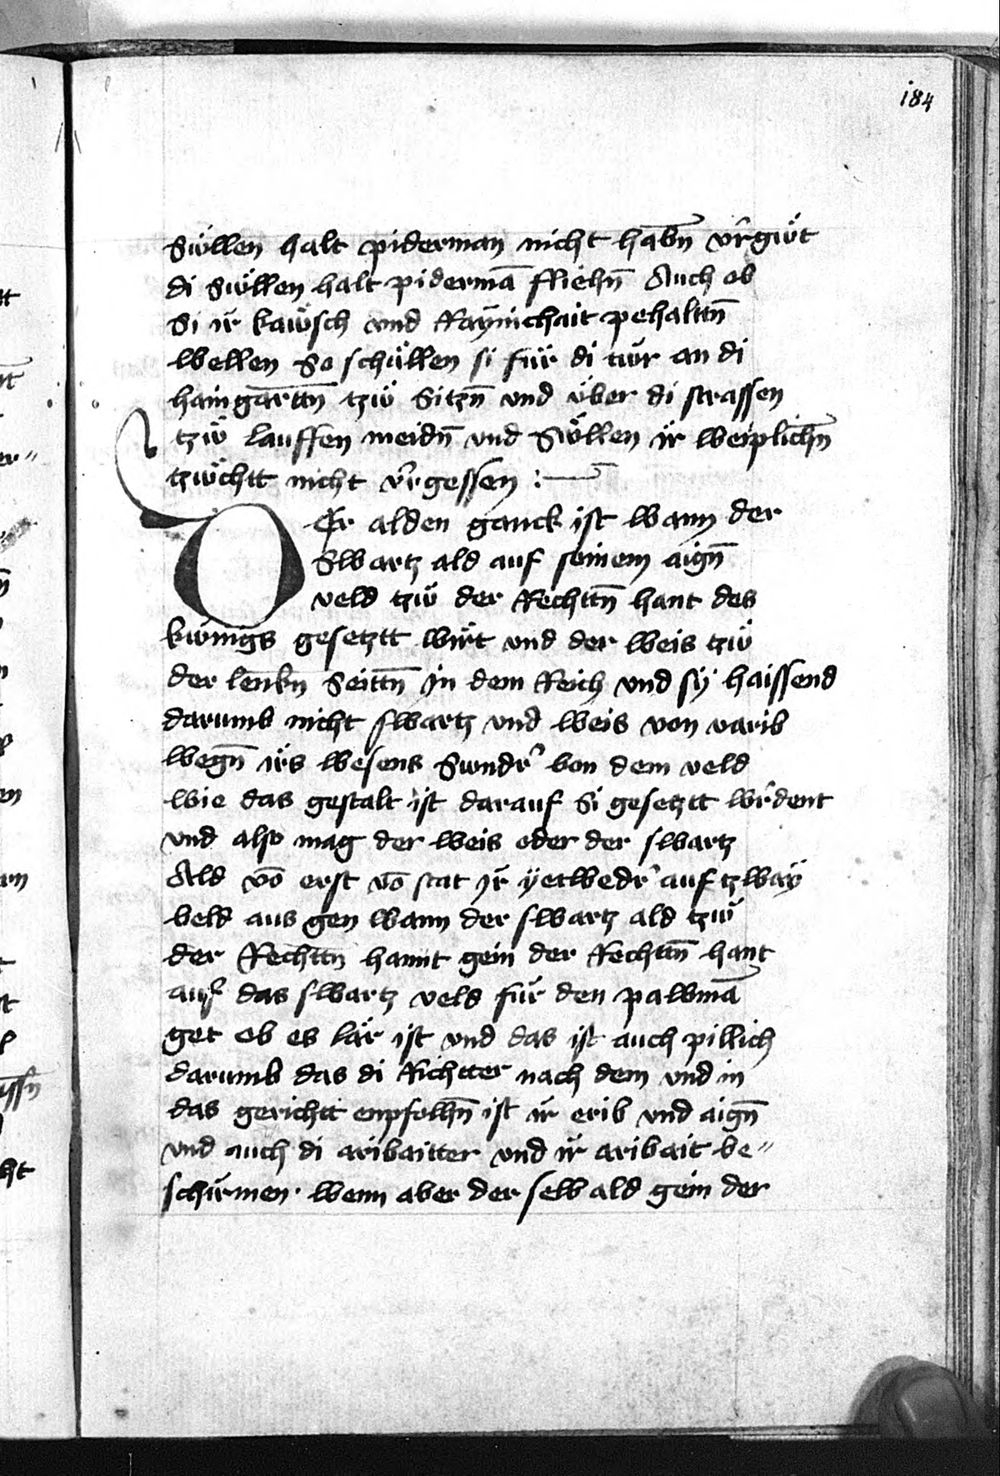 184
Süllen halt piderman nicht habn̄ vr̄güt
di süllen halt pidermā fliehn̄ Auch ob
Si ir kawsch vnd Raynichait pehalttn̄
wellen So schüllen si für di tür an di
haingarttn̄ tzw̋ Sitzn̄ vnd über di strassen
tzw̋ lauffen meidn̄ vnd Süllen ir weiplichn̄
tzüchtt nicht vr̄gessen :—
Der alden ganck ist wann der
Swartz ald auf seinem aign̄
veld tzw̋ der Rechttn̄ hant des
künigs gesetztt wirt vnd der weis tzw̋
der lenkn̄ Seittn̄ In dem Reich vnd sÿ haissend
darumb nicht swartz vnd weis von varib
wegn̄ irs wesens Sundr̄ von dem veld
wie das gestalt ist darauf Si gesetztt wr̄dent
vnd also mag der weis oder der swartz
Ald vō erst vō stat Ir̄ ÿetwedr̄ auf tzway
veld aus gen wann der swartz ald tzw̋
der Rechttn̄ hannt gein der Rechttn̄ hant
auf das swartz veld für den pawmā
get ob es lär ist vnd das ist auch pillich
darumb das di Richtter nach dem vnd in
das gerichtt enpfolhn̄ ist ir erib vnd aign̄
vnd auch di aribaitter vnd ir aribait be〃
schirmen · wenn aber der selb ald gein der